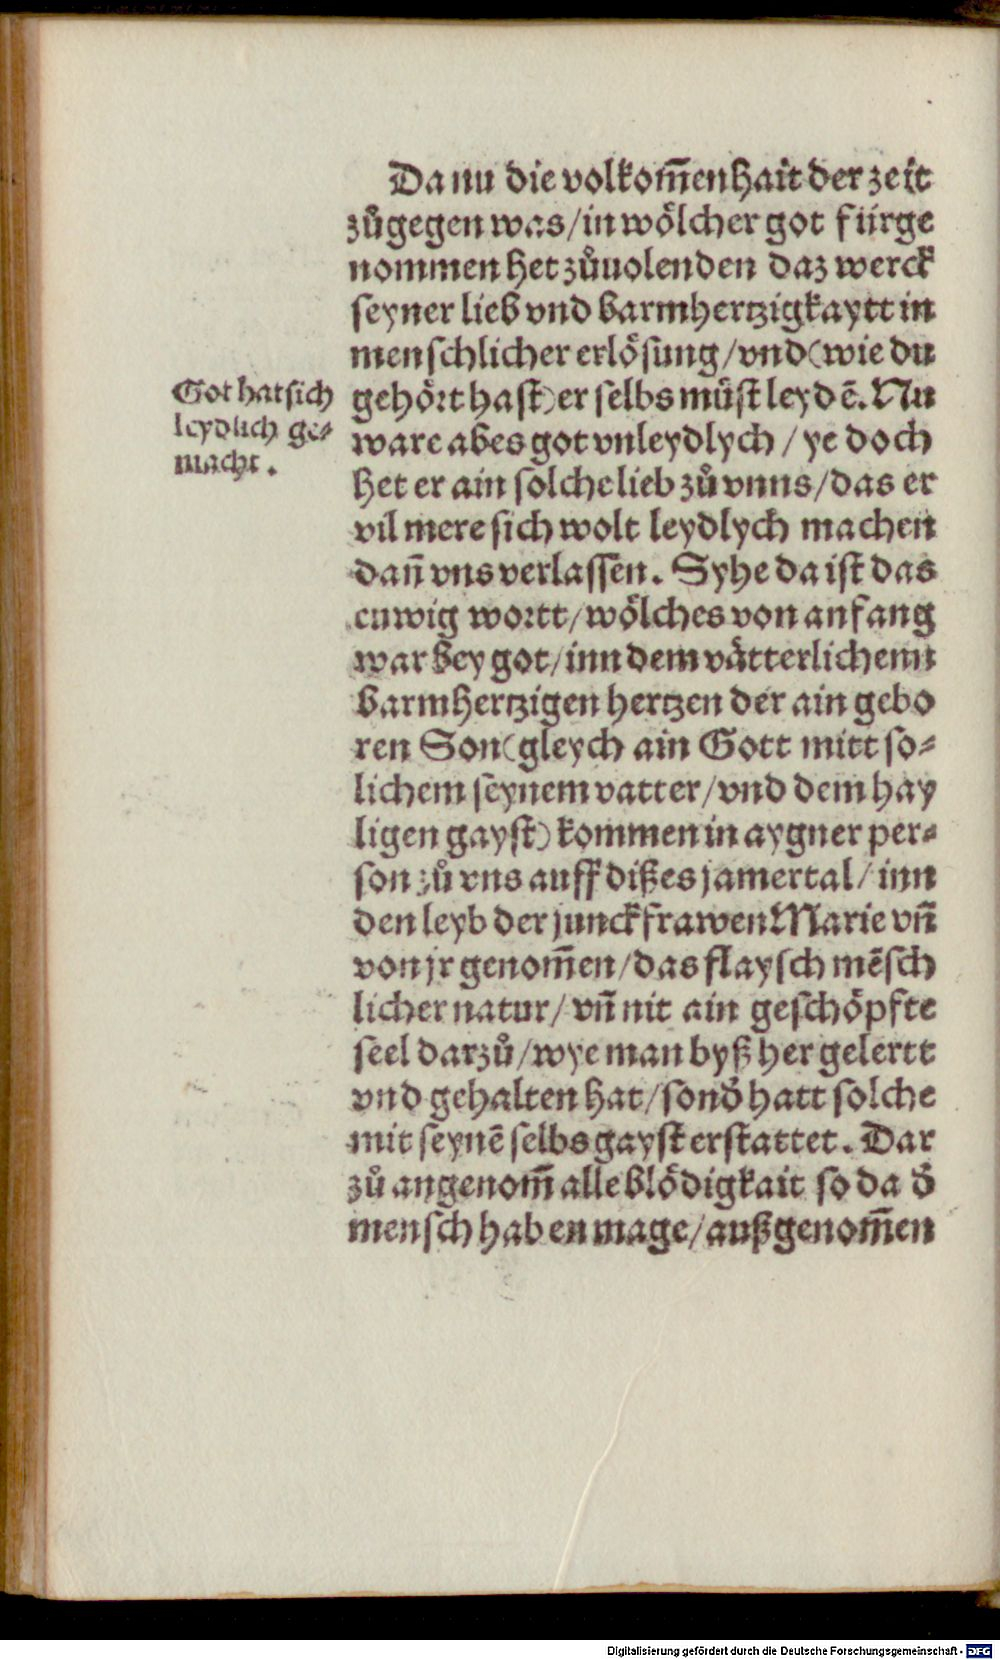 Da nu die volkom̃enhait der zeit
zůgegen was/in wölcher got fürge
nommen het zůuolenden daz werck
seyner lieb vnd barmhertzigkaytt in
menschlicher erlösung/vnd(wie du
gehört hast)er selbs müst leydē. Nu
ware abes got vnleydlych/ye doch
het er ain solche lieb zů vnns/das er
vil mere sich wolt leydlych machen
dañ vns verlassen. Syhe da ist das
euwig wortt/wölches von anfang
war bey got/inn dem vätterlichemm
barmhertzigen hertzen der ain gebo
ren Son(gleych ain Gott mitt so⸗
lichem seynem vatter/vnd dem hay
ligen gayst)kommen in aygner per⸗
son zů vns auff dißes jamertal/inn
den leyb der junckfrawen Marie vñ
von jr genom̃en/das flaysch mēsch
licher natur/vñ nit ain geschöpfte
seel darzů/wye man byß her gelertt
vnd gehalten hat/sonđ hatt solche
mit seynē selbs gayst erstattet. Dar
zů angenom̃ alle blödigkait so da đ
mensch haben mage/außgenom̃en
Got hat sich
leydlich ge⸗
macht.
Digitalisierung gefördert durch die Deutsche Forschungsgemeinschaft - DFG